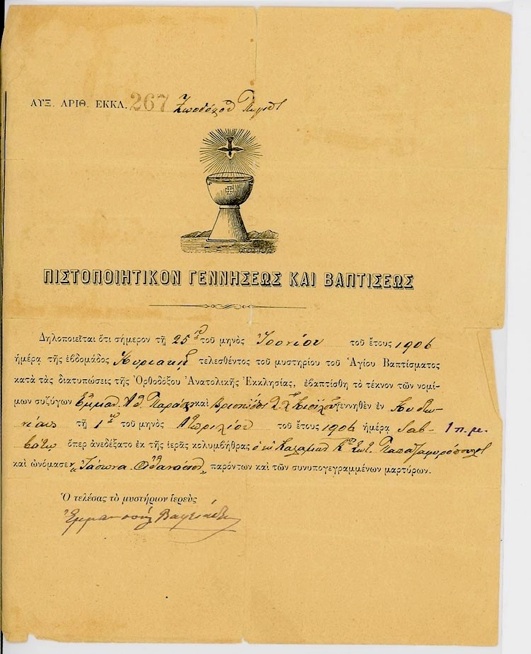 ΑΥΞ. ΑΡΙΘ. ΕΚΚΛ. 267 Ζωοδόχου Πηγής
ΠΙΣΤΟΠΟΙΗΤΙΚΟΝ ΓΕΝΝΗΣΕΩΣ ΚΑΙ ΒΑΠΤΙΣΕΩΣ
Δηλοποιεῖται ὅτι σήμερον τῇ 25ῃ τοῦ μηνὸς Ἰουνίου τοῦ ἔτους 1906
ἡμέρᾳ τῆς ἑβδομάδος Κυριακῇ τελεσθέντος τοῦ μυστηρίου τοῦ Ἁγίου Βαπτίσματος
κατὰ τὰς διατυπώσεις τῆς Ὀρθοδόξου Ἀνατολικῆς Ἐκκλησίας, ἐβαπτίσθη τὸ τέκνον τῶν νομί-
μων συζύγων Ἐμμαν. καὶ γεννηθὲν ἐν Κυδω-
νίαις τῇ 1ῃ τοῦ μηνὸς Ἀπριλίου τοῦ ἔτους 1906 ἡμέρᾳ Σαβ- 1 π.μ.
βάτῳ ὅπερ ἀνεδέξατο ἐκ τῆς ἱερᾶς κολυμβήθρας ὁ
καὶ ὠνόμασε „Ἰάσωνα “ παρόντων καὶ τῶν συνυπογεγραμμένων μαρτύρων.
Ὁ τελέσας τὸ μυστήριον ἱερεὺς
Ἐμμανουήλ